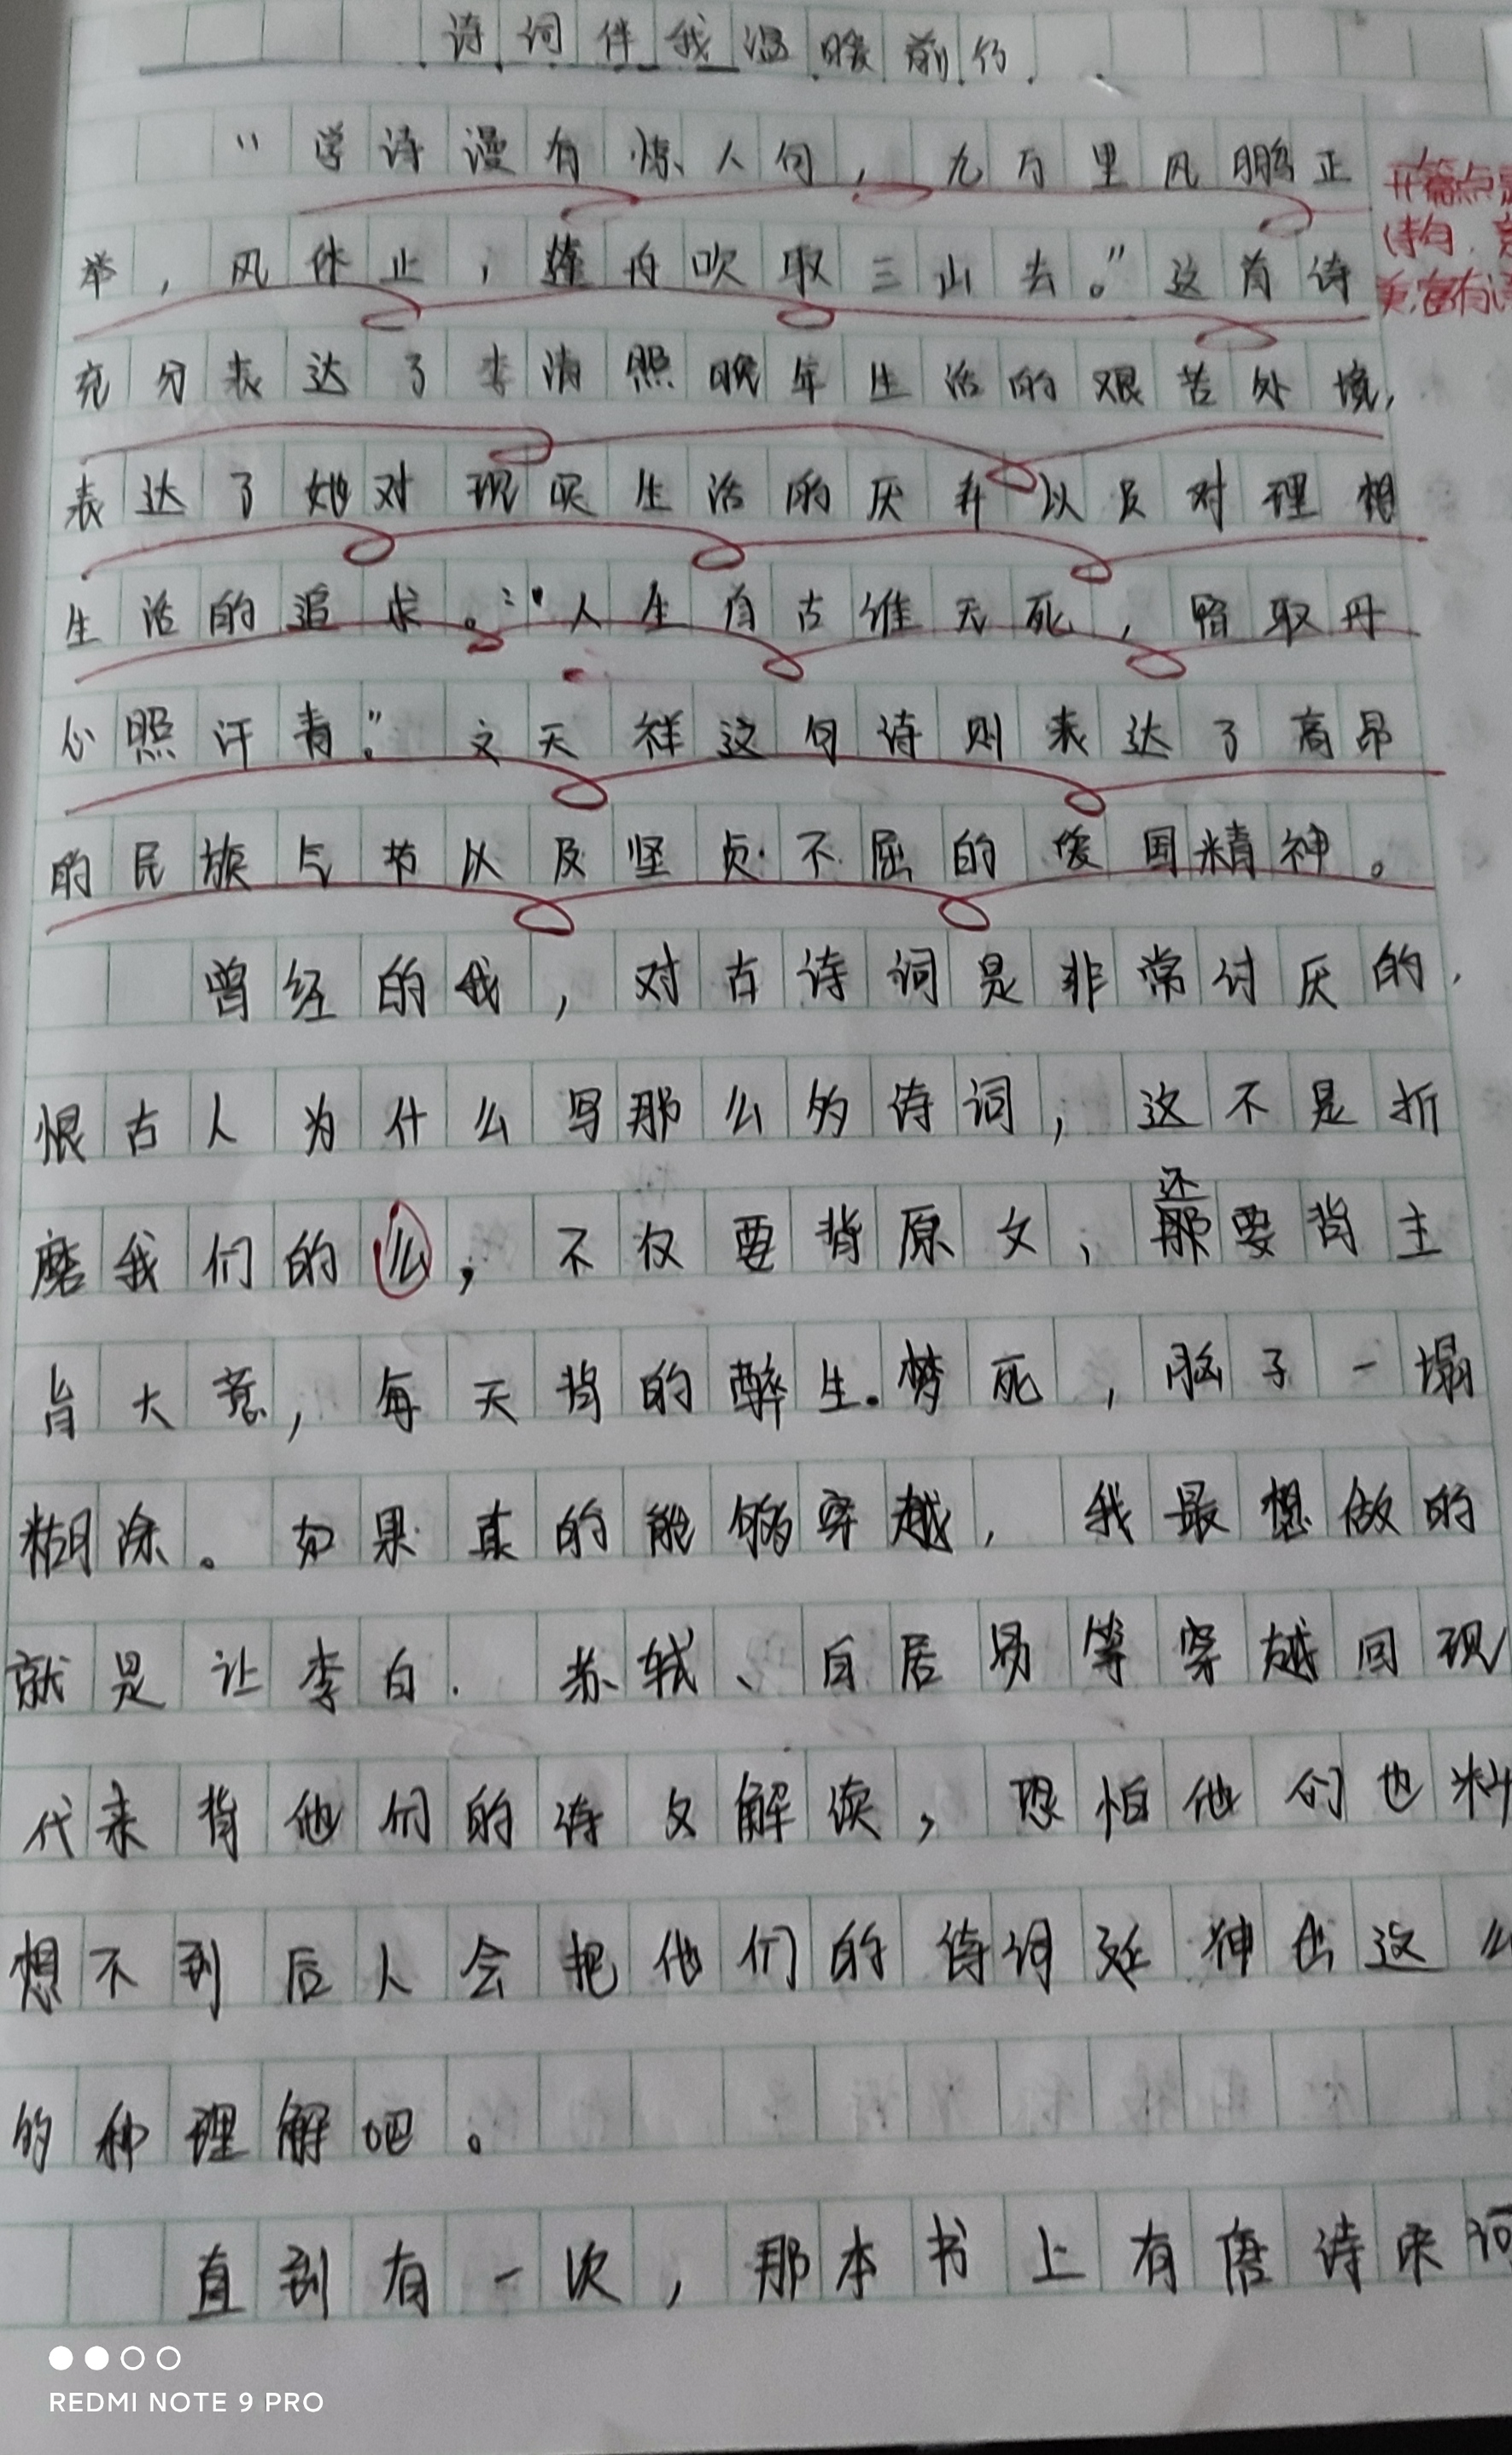 诗词伴我温暖前行
“学诗漫有惊人句，九万里风鹏正
开篇点
举，风休止，蓬舟吹取三山去。”这首诗
诗句，
充分表达了李清照晚年生活的艰苦处境，
表达了她对现实生活的厌弃以及对理想
生活的追求。“人生自古谁无死，留取丹
心照汗青。”文天祥这句诗则表达了高昂
的民族气节以及坚贞不屈的爱国精神。
曾经的我，对古诗词是非常讨厌的，
恨古人为什么写那么多诗词，这不是折
还
磨我们的么，不仅要背原文，那要背主
旨大意，每天背的醉生梦死，脑子一塌
糊涂。如果真的能够穿越，我最想做的
就是让李白、苏轼、白居易等穿越回现
代来背他们的诗文解读，恐怕他们也料
想不到后人会把他们的诗词延神出这么
多种理解吧。
直到有一次，那本书上有唐诗宋词
REDMI NOTE 9 PRO